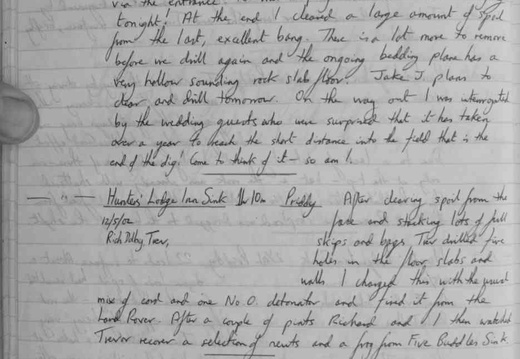 via the entrance.
tonight! At the end I cleared a large amount of spoil
from the last, excellent bang. There is a lot more to remove
before we drill again and the ongoing bedding plane has a
very hollow sounding rock slab floor. Jake J. plans to
clear and drill tomorrow. On the way out I was interrogated
by the wedding guests who were surprised that it has taken
over a year to reach the short distance into the field that is the
end of the dig! Come to think of it - so am I.
— " — Hunters' Lodge Inn Sink 1h 10m Priddy After clearing spoil from the
12/5/02 face and stacking lots of full
Rich Dolby, Trev, skips and bags, Trev drilled five
holes in the floor, slabs and
walls. I charged this with the usual
mix of cord and one No. 0. detonator and fired it from the
Land Rover. After a couple of pints Richard and I then watched
Trevor recover a selection of newts and a frog from Five Buddles Sink.